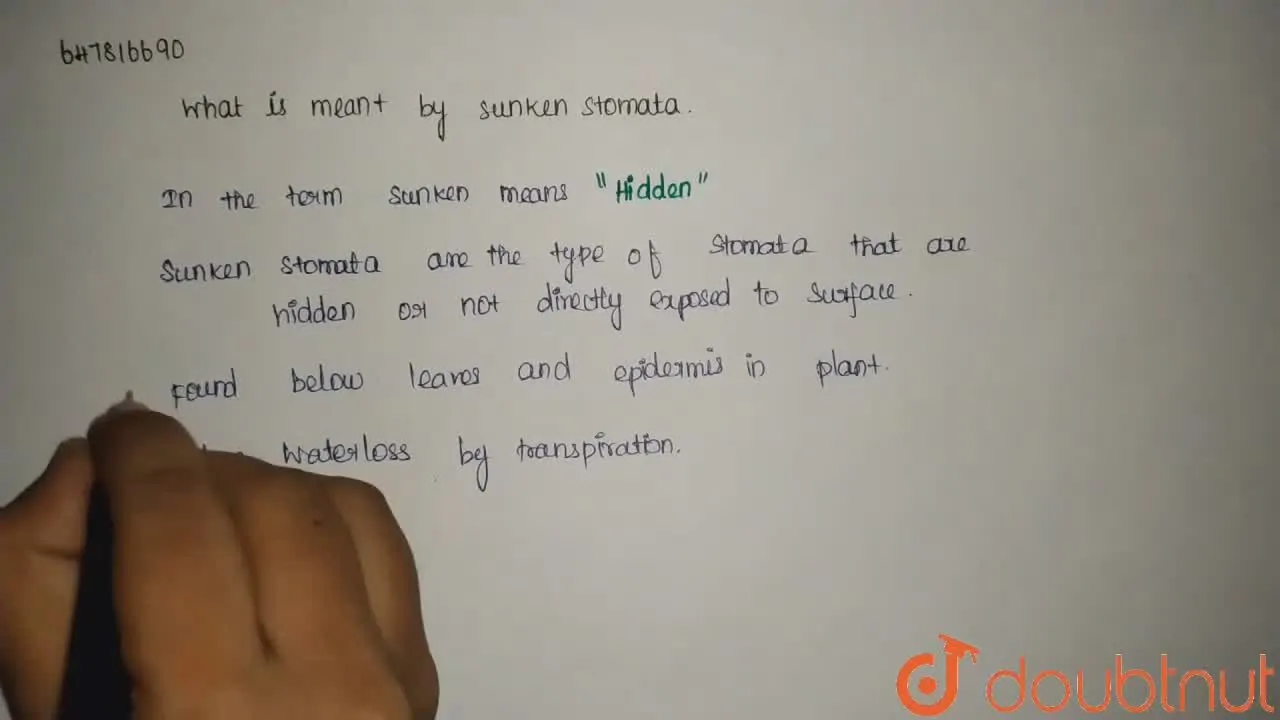 647816690
What is meant by sunken stomata.
In the term sunken means "Hidden"
Sunken stomata are the type of stomata that are
hidden or not directly exposed to surface.
Found below leaves and epidermis in plant.
waterloss by transpiration.
doubtnut